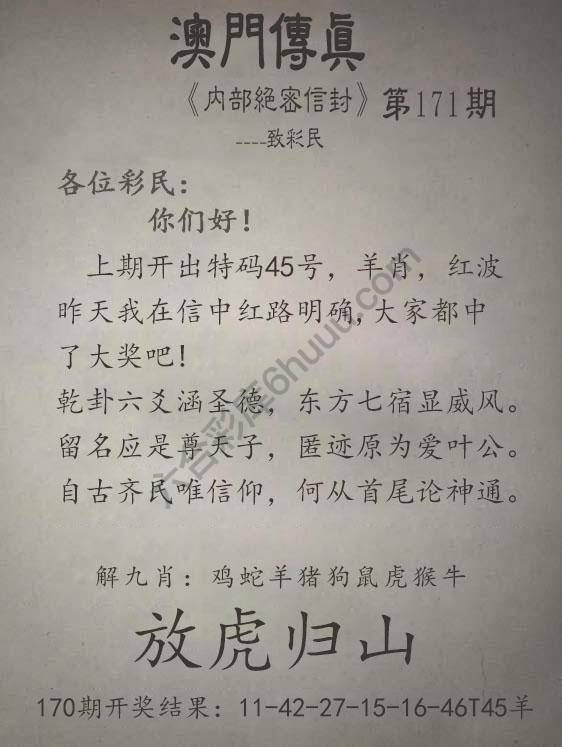 澳門傳眞
《内部絕密信封》第171期
----致彩民
各位彩民：
你们好！
上期开出特码45号，羊肖，红波
昨天我在信中红路明确,大家都中
了大奖吧！
乾卦六爻涵圣德，东方七宿显威风。
留名应是尊天子，匿迹原为爱叶公。
自古齐民唯信仰，何从首尾论神通。
六合彩库6huuu.com
解九肖：鸡蛇羊猪狗鼠虎猴牛
放虎归山
170期开奖结果：11-42-27-15-16-46T45羊